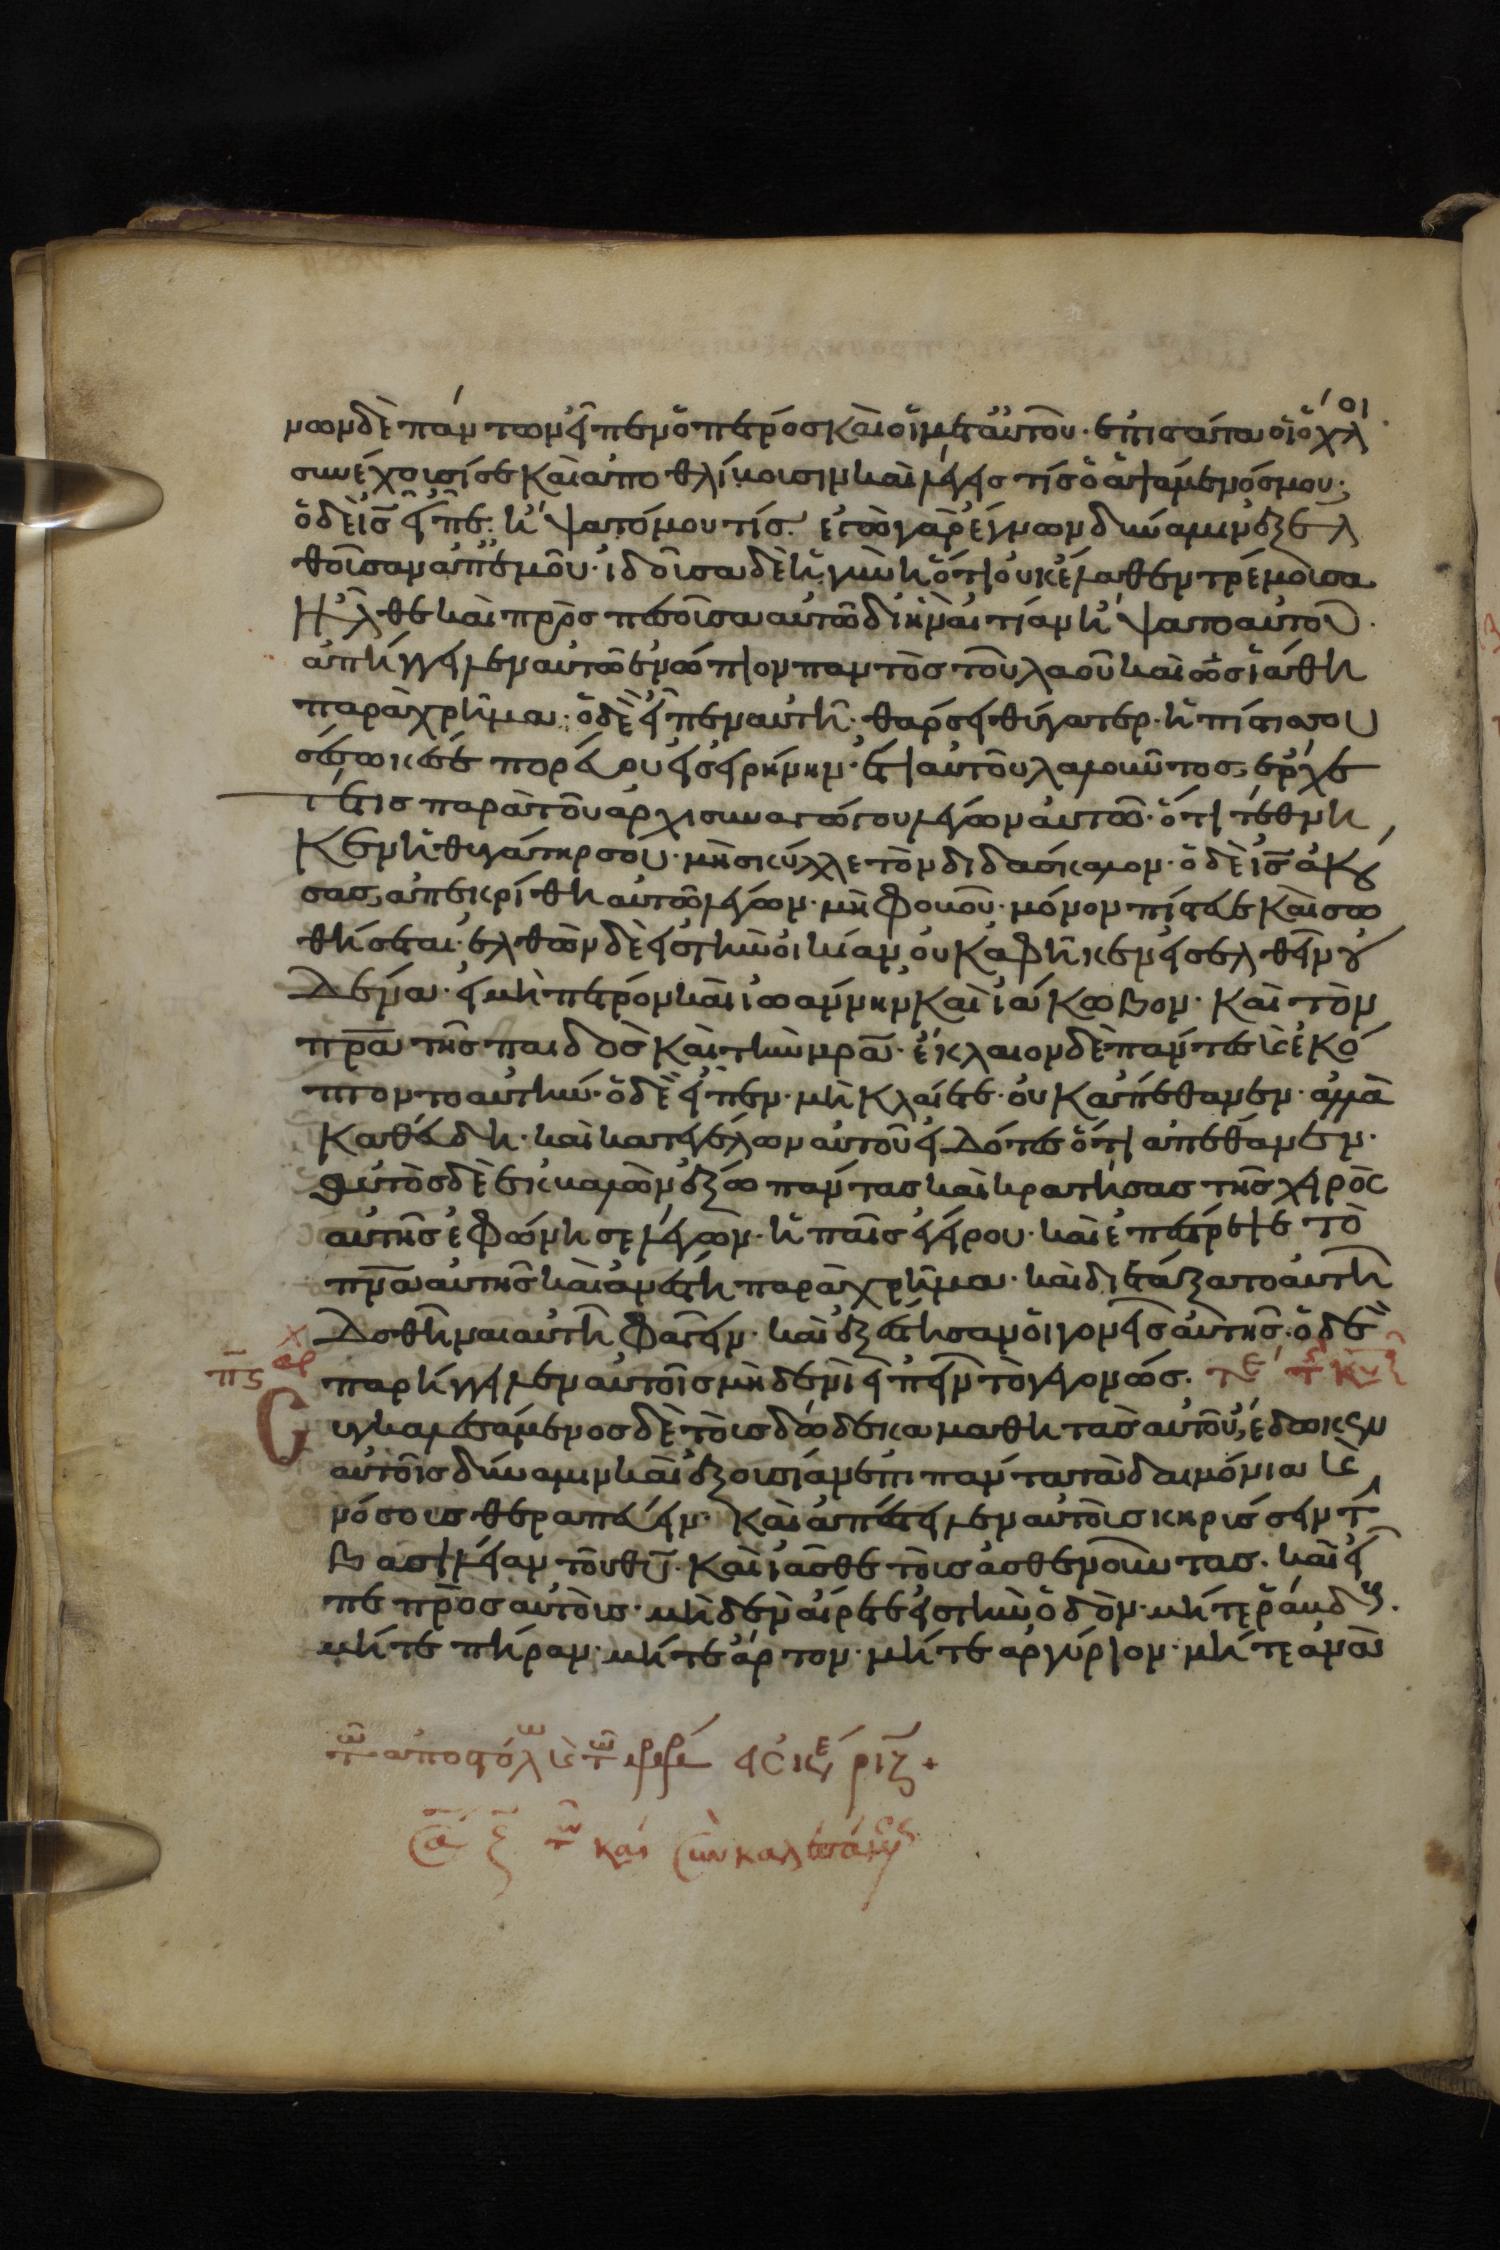 μων δὲ πάντων εἶπεν ὁ πέτρος καὶ οἱ μετ αὐτοῦ· ἐπιστάτα οἱ ὄχλοι
συνέχουσί σε καὶ ἀποθλίβουσιν καὶ λέγεις τίς ὁ ἁψάμενός μου;
ὁ δὲ ις εἶπε· ἥψατό μου τίς· ἐγὼ γὰρ ἔγνων δύναμιν ἐξελ
θοῦσαν ἀπ' ἐμοῦ· ἰδοῦσα δὲ ἡ γυνὴ ὅτι οὐκ ἔλαθεν τρέμουσα
ἦλθε καὶ προσπεσοῦσα αὐτῶ δι ἣν αἰτίαν ἥψατο αὐτοῦ·
ἀπήγγειλεν αὐτῶ ἐνώπιον παντὸς τοῦ λαοῦ καὶ ὡς ἰάθη
παραχρῆμα· ὁ δὲ εἶπεν αὐτῆ· θάρσει θύγατερ· ἡ πίστις σου
σέσωκέ σε πορεύου εἰς εἰρήνην· ἔτι αὐτοῦ λαλοῦντος, ἔρχε
ταί τις παρὰ τοῦ ἀρχισυναγώγου λέγων αὐτῶ· ὅτι τέθνη
κεν ἡ θυγάτηρ σου· μὴ σκύλλε τὸν διδάσκαλον· ὁ δὲ ις ἀκού
σας, ἀπεκρίθη αὐτῶ λέγων· μὴ φοβοῦ· μόνον πίστευε καὶ σω
θήσεται· ἐλθὼν δὲ εἰς τὴν οἰκίαν οὐκ ἀφῆκεν εἰσελθεῖν οὐ
δένα· εἰ μὴ πέτρον καὶ ἰωάννην καὶ ἰάκωβον· καὶ τὸν
πρα τῆς παιδὸς καὶ τὴν μρα· ἔκλαιον δὲ πάντες καὶ ἐκό
πτοντο αὐτήν· ὁ δὲ εἶπεν· μὴ κλαίετε· οὐκ ἀπέθανεν· ἀλλὰ
καθεύδει· καὶ κατεγέλων αὐτοῦ εἰδότες ὅτι ἀπέθανεν·
αὐτὸς δὲ ἐκβαλὼν ἔξω πάντας καὶ κρατήσας τῆς χειρὸς
αὐτῆς ἐφώνησε λέγων· ἡ παῖς ἐγείρου· καὶ ἐπέστρεψε τὸ
πνα αὐτῆς καὶ ἀνέστη παραχρῆμα· καὶ διέταξατο αὐτῆ
δοθῆναι αὐτῆ φαγεῖν· καὶ ἐξέστησαν οἱ γονεῖς αὐτῆς· ὁ δὲ
παρήγγειλεν αὐτοῖς μηδενὶ εἰπεῖν τὸ γεγονώς·
Συγκαλεσάμενος δὲ τοὺς δώδεκα μαθητὰς αὐτοῦ, ἔδωκεν
αὐτοῖς δύναμιν καὶ ἐξουσίαν ἐπὶ πάντα τὰ δαιμόνια καὶ
νόσους θεραπεύειν· καὶ ἀπέστειλεν αὐτοὺς κηρύσσειν τὴν
βασιλείαν τοῦ θυ· καὶ ἰᾶσθε τοὺς ἀσθενοῦντας· καὶ εἶ
πε πρὸς αὐτούς· μηδὲν αἴρετε εἰς τὴν ὁδόν· μήτε ῥάβδους·
μήτε πήραν· μήτε ἄρτον· μήτε ἀργύριον· μήτε ἀνὰ